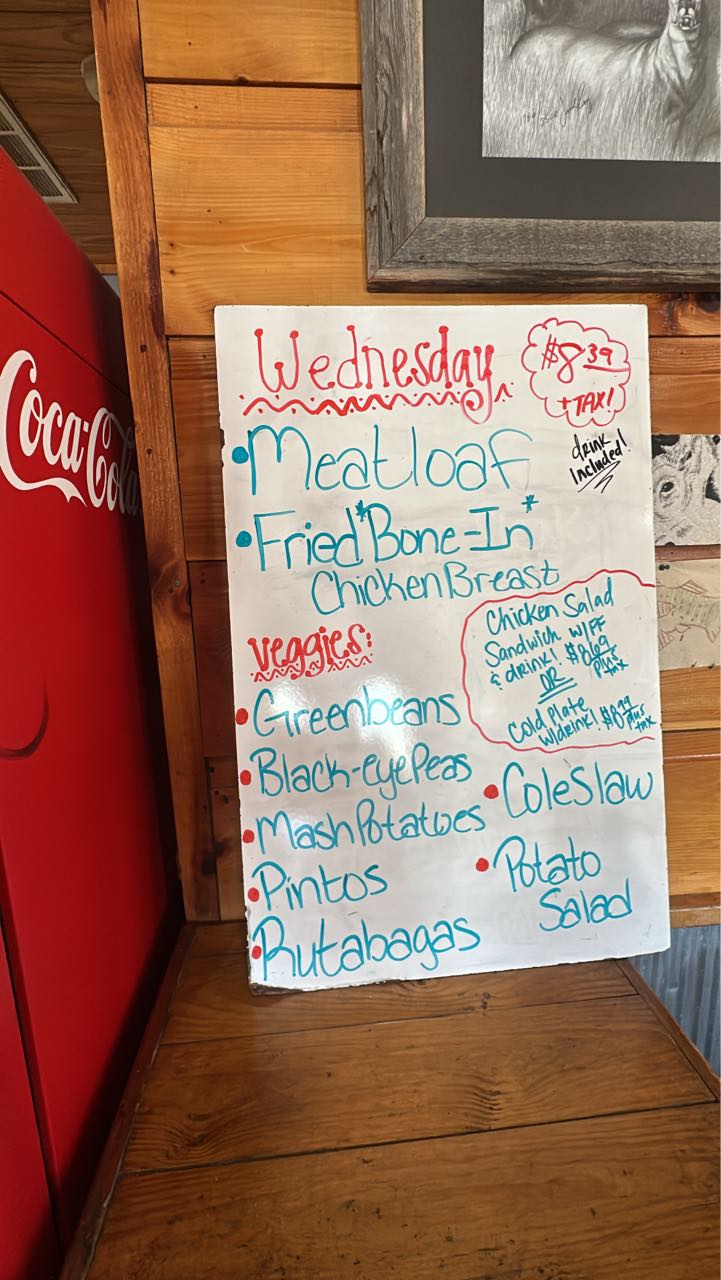 Coca-Cola
Wednesday
$8.39
+TAX!
drink
included!
• Meatloaf
• Fried *Bone-In*
Chicken Breast
Chicken Salad
Sandwich W/FF
& drink! $8.69
plus
tax
OR
Cold Plate
w/drink! $8.39
plus
tax
Veggies:
• Greenbeans
• Black-eye Peas
• Mash Potatoes
• Pintos
• Rutabagas
• Cole Slaw
• Potato
Salad